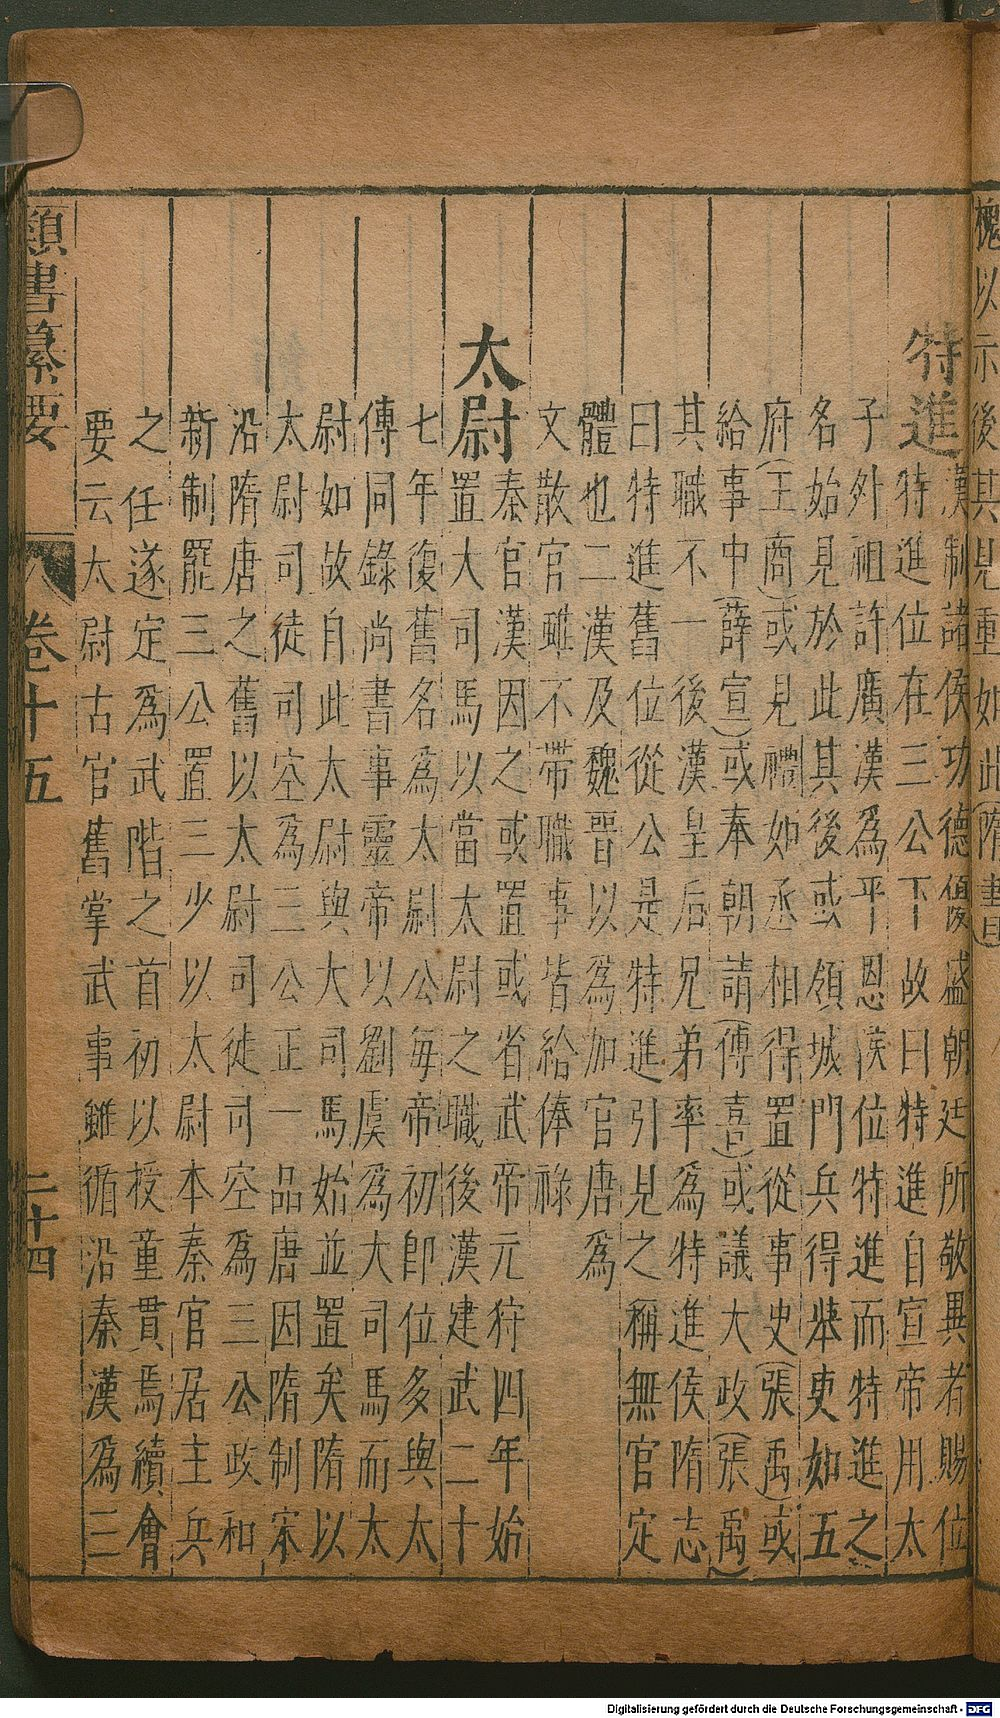 槐以示後其見重如此(隋書曰)
特進
漢制諸侯功德優盛朝廷所敬異者賜位
特進位在三公下故曰特進自宣帝用太
子外祖許廣漢為平恩侯位特進而特進之
名始見於此其後或領城門兵得舉吏如五
府(王商)或見禮如丞相得置從事史(張禹)或
給事中(薛宣)或奉朝請(傅喜)或議大政(張禹)
其職不一後漢皇后兄弟率為特進侯隋志
曰特進舊位從公是特進引見之稱無官定
體也二漢及魏晉以為加官唐為
文散官雖不帶職事皆給俸祿
太尉
秦官漢因之或置或省武帝元狩四年始
置大司馬以當太尉之職後漢建武二十
七年復舊名為太尉公每帝初即位多與太
傅同錄尚書事靈帝以劉虞為大司馬而太
尉如故自此太尉與大司馬始並置矣隋以
太尉司徒司空為三公正一品唐因隋制宋
沿隋唐之舊以太尉司徒司空為三公政和
新制罷三公置三少以太尉本秦官居主兵
之任遂定為武階之首初以授童貫焉續會
要云太尉古官舊掌武事雖循沿秦漢為三
類書纂要 卷十五 二十四
Digitalisierung gefördert durch die Deutsche Forschungsgemeinschaft - DFG